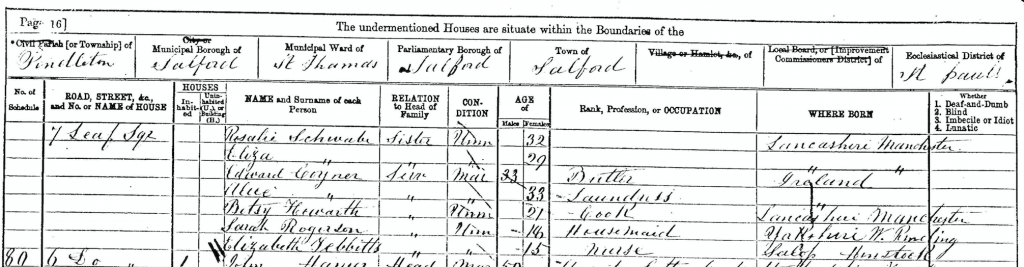 Page 16]
The undermentioned Houses are situate within the Boundaries of the
Civil Parish [or Township] of
Pendleton
City or
Municipal Borough of
Salford
Municipal Ward of
St Thomas
Parliamentary Borough of
Salford
Town of
Salford
Village or Hamlet, &c., of
Local Board, or [Improvement
Commissioners District] of
Ecclesiastical District of
St Pauls
No. of
Schedule
ROAD, STREET, &c.,
and No. or NAME of HOUSE
HOUSES
In-
habit-
ed
Unin-
habited
(U.), or
Building
(B.)
NAME and Surname of each
Person
RELATION
to Head of
Family
CON-
DITION
AGE
of
Males
Females
Rank, Profession, or OCCUPATION
WHERE BORN
Whether
1. Deaf-and-Dumb
2. Blind
3. Imbecile or Idiot
4. Lunatic
7 Leaf Sqe Rosalie Schwabe Sister Unm 32 Lancashire Manchester
Eliza " " " 29 " "
Edward Coyner Serv Mar 33 Butler Ireland
" " " 33 Laundress "
Betsy Howarth " Unm 21 Cook Lancashire Manchester
Sarah Rogerson " Unm 18 Housemaid Yorkshire W.
Elizabeth Tebbitts " " 15 Nurse Salop
80 6 Do 1 John Head Mar 50